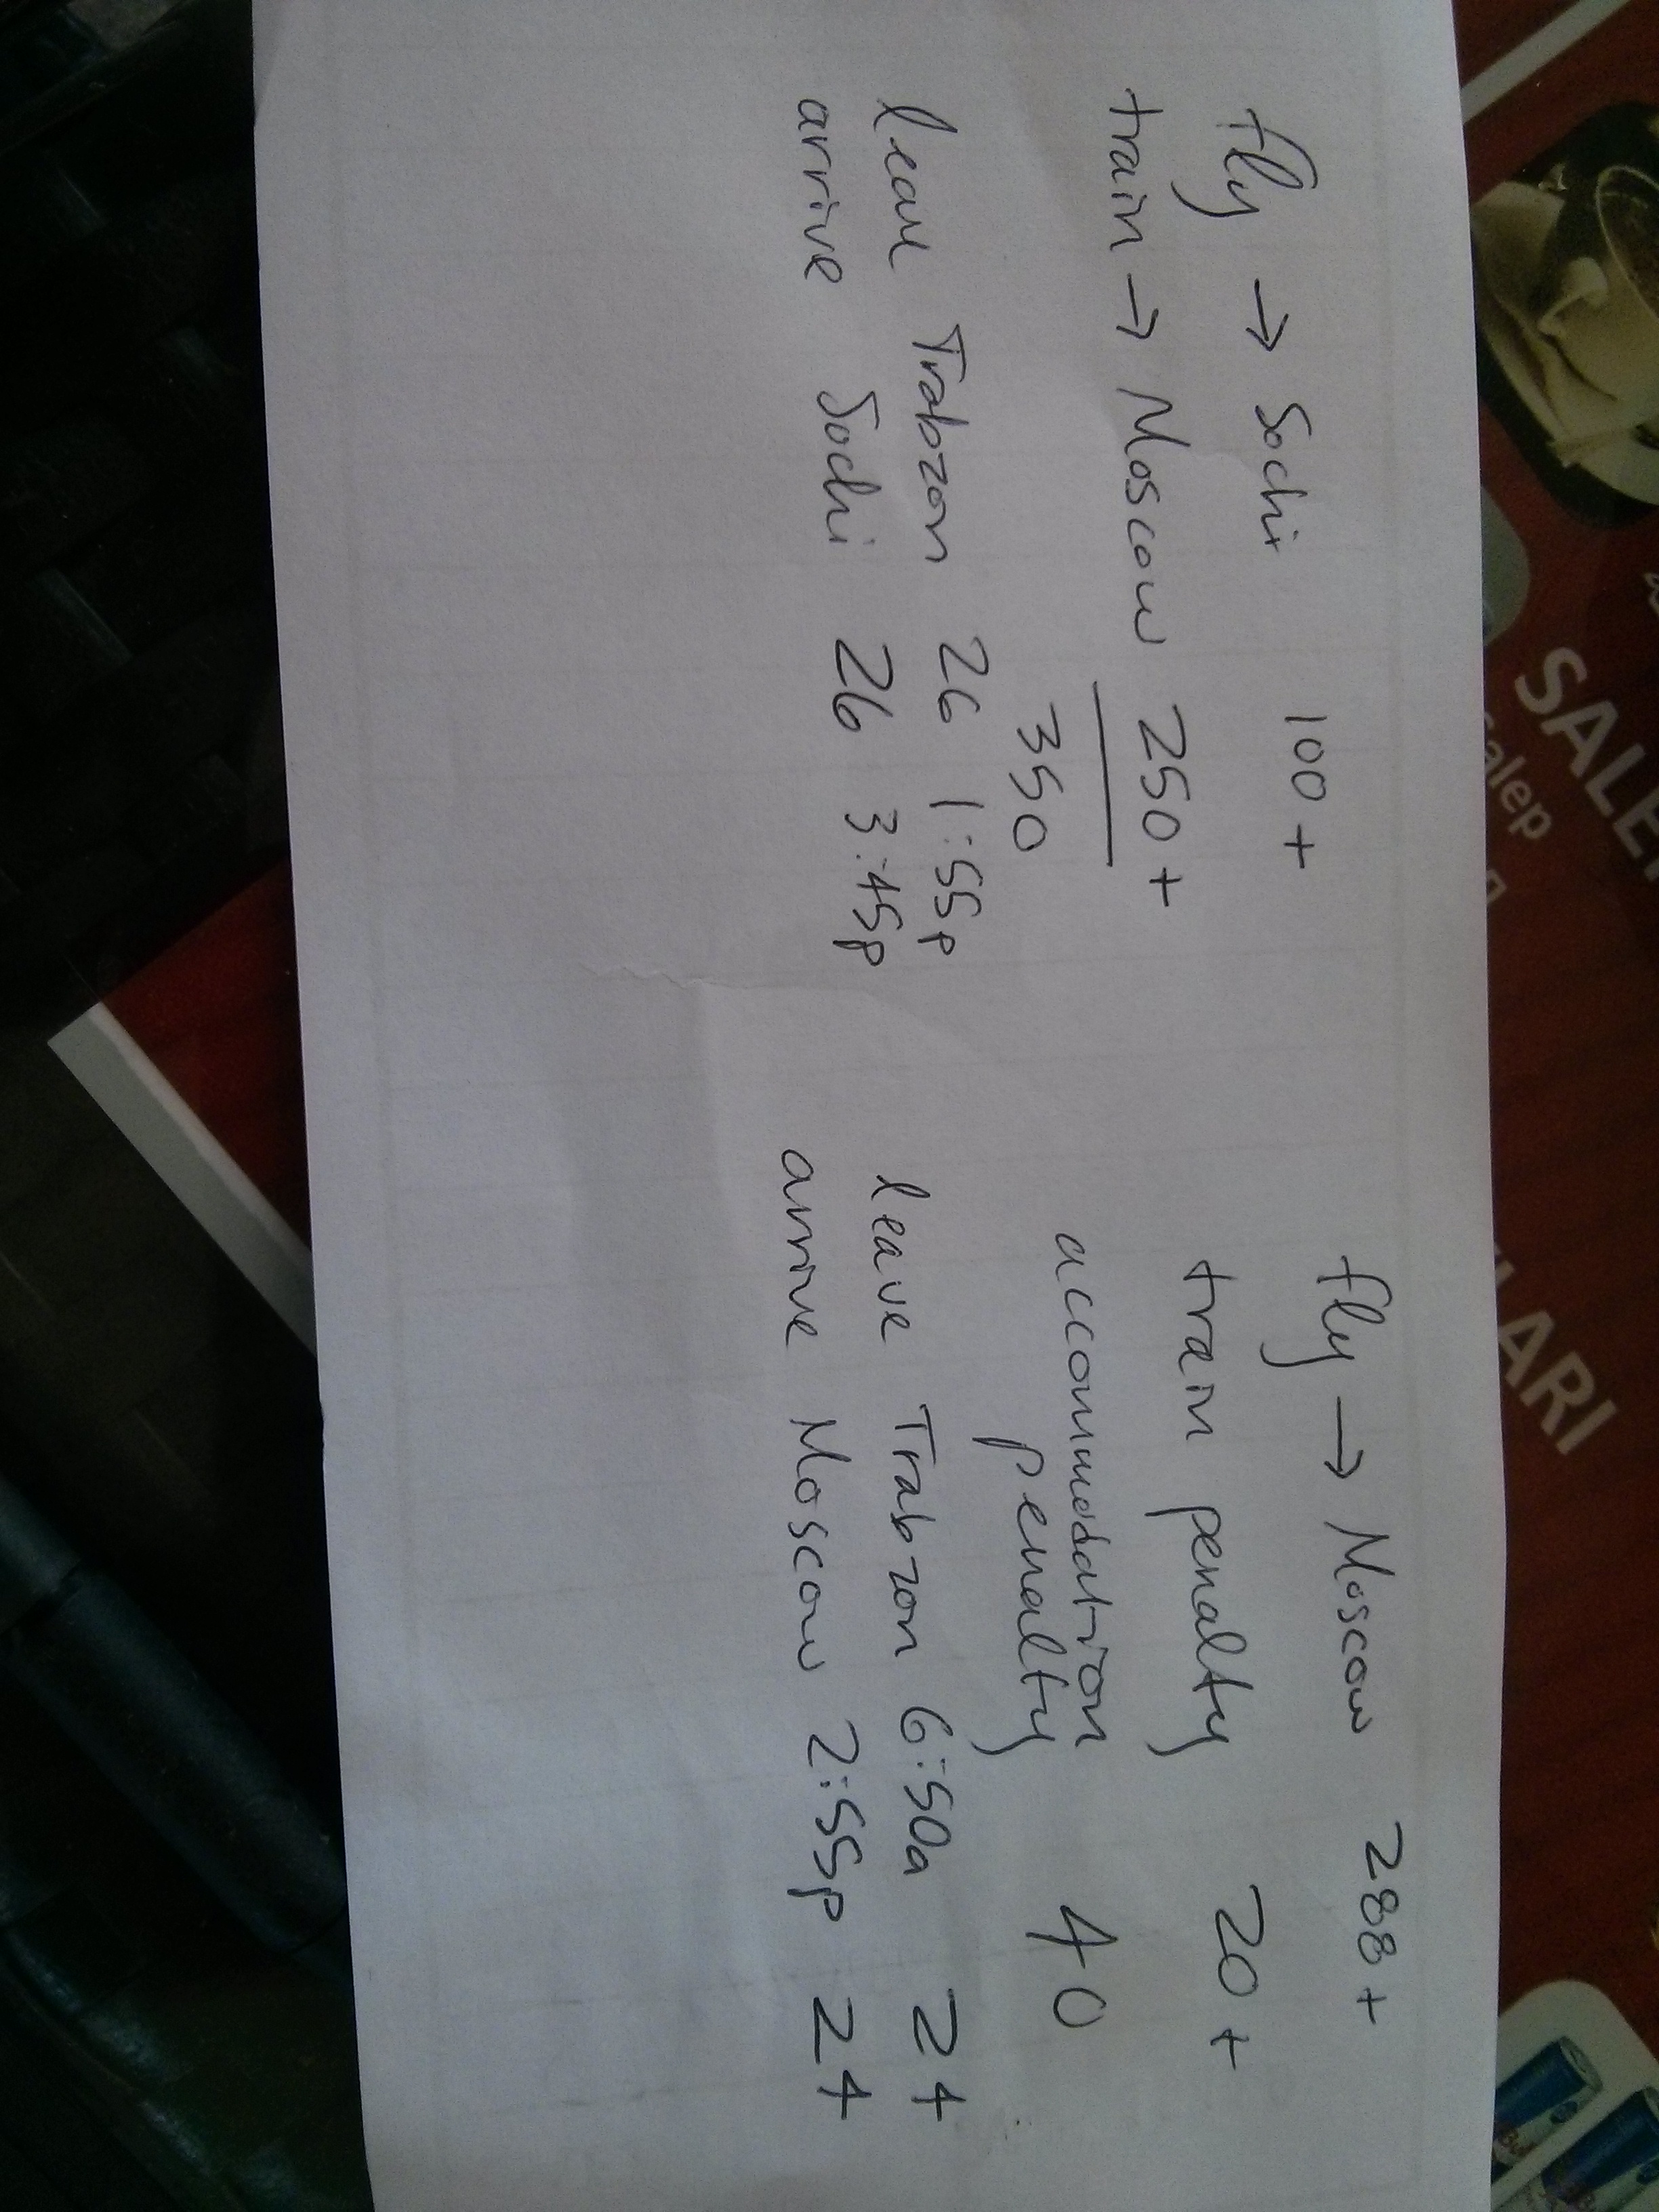 fly → Sochi 100+
train → Moscow 250+
350
leave Trabzon 26 1:55p
arrive Sochi 26 3:45p
fly → Moscow 288+
train penalty 20+
accommodation 40
penalty
leave Trabzon 6:50a 24
arrive Moscow 2:55p 24
SALE
salep
ARI